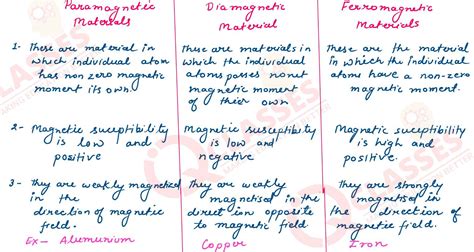 Paramagnetic
Materials
Diamagnetic
Material
Ferromagnetic
Materials
1- These are material in
which individual atom
has non zero magnetic
moment its own.
These are materials in
which the individual
atoms posses no net
magnetic moment
of their own
These are the material
in which the individual
atoms have a non-zero
magnetic moment.
2- Magnetic suceptibility
is low and
positive
Magnetic susceptibility
is low and
negative
Magnetic suceptibility
is high and
positive.
3- They are weakly magnetised
in the
direction of magnetic
field.
They are weakly
magnetised in the
direction opposite
to magnetic field
They are strongly
magnetised in
the direction of
magnetic field.
Ex- Alumunium
Copper
Iron
CLASSES
CLASSES